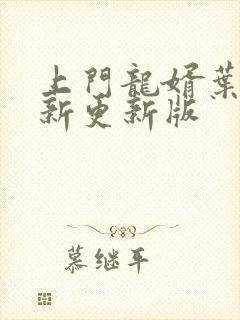 上門龍婿葉
新更新版
慕继平